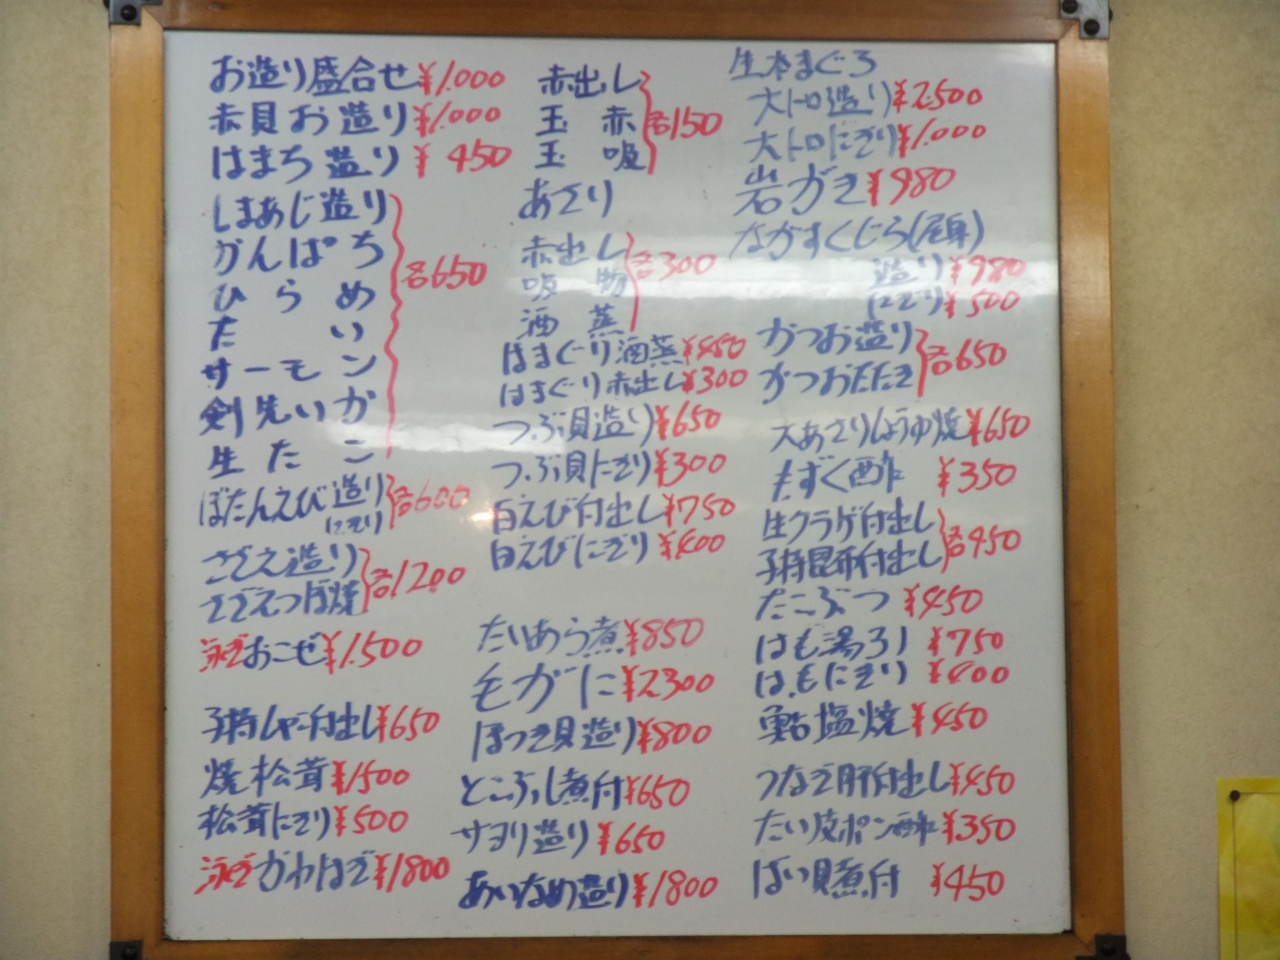 お造り盛合せ ¥1.000
赤貝お造り ¥1.000
はまち造り ¥450
しまあじ造り
かんぱち
ひらめ
たい
サーモン
剣先いか
生たこ
各650
ぼたんえび造り
にぎり
各600
さざえ造り
さざえつぼ焼
各1200
泳ぎおこぜ ¥1.500
子持しゃこ付出し ¥650
焼松茸 ¥1500
松茸にぎり ¥500
泳ぎかわはぎ ¥1800
赤出し
玉赤
玉吸
各150
あさり
赤出し
吸物
酒蒸
各300
はまぐり酒蒸 ¥450
はまぐり赤出し ¥300
つぶ貝造り ¥650
つぶ貝にぎり ¥300
白えび付出し ¥750
白えびにぎり ¥400
たいあら煮 ¥850
毛がに ¥2300
ほっき貝造り ¥800
とこぶし煮付 ¥650
サヨリ造り ¥650
あいなめ造り ¥1800
生本まぐろ
大トロ造り ¥2500
大トロにぎり ¥1.000
岩がき ¥980
ながすくじら(尾身)
造り ¥980
にぎり ¥500
かつお造り
かつおたたき
各650
大あさりしょうゆ焼 ¥650
もずく酢 ¥350
生クラゲ付出し
子持昆布付出し
各450
たこぶつ ¥450
はも湯引 ¥750
はもにぎり ¥400
鮎塩焼 ¥450
うなぎ肝付出し ¥450
たい皮ポン酢 ¥350
ばい貝煮付 ¥450